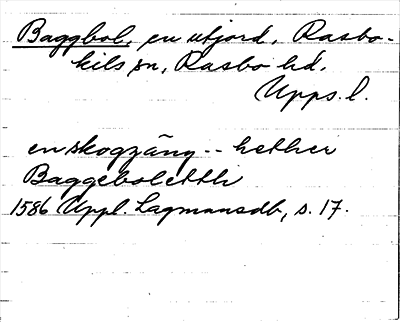 Baggbol, en utjord, Rasbo-
kils sn, Rasbo hd,
Upps. l.
en skogzäng -- hether
Baggeboletth
1586 Uppl. Lagmansdb, s. 17.